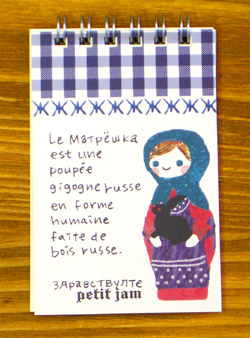 ЖЖЖЖЖЖЖЖЖ
Le Матрёшка
est une
poupée
gigogne russe
en forme
humaine
faite de
bois russe.
ЗДРАВСТВУЛТЕ
petit jam